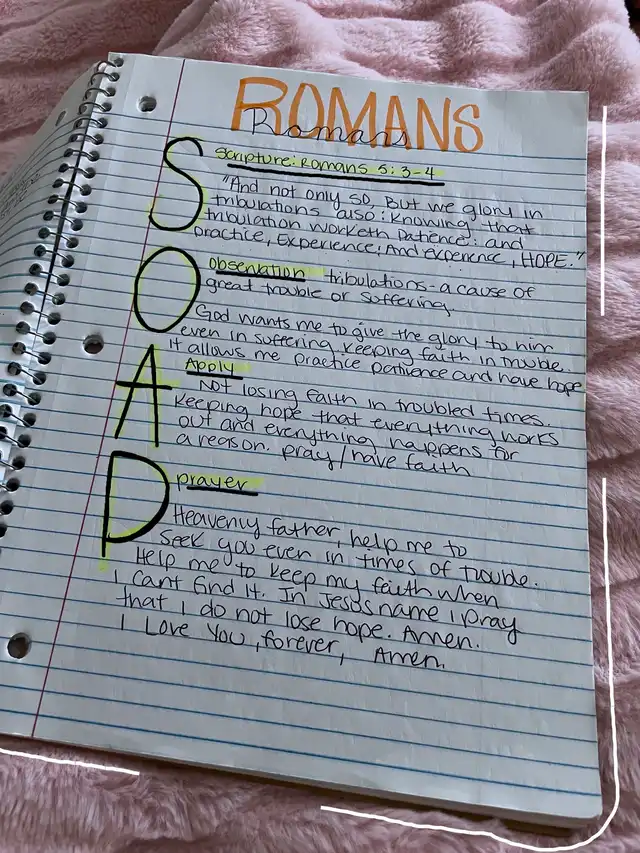 ROMANS
Romans
S
Scripture: Romans 5:3-4
"And not only so, But we glory in
tribulations also: Knowing that
tribulation worketh Patience: and
practice, Experience; And experience, HOPE."
O
Observation tribulations - a cause of
great trouble or suffering.
God wants me to give the glory to him
even in suffering keeping faith in trouble.
It allows me practice patience and have hope
A
Apply
Not losing faith in troubled times.
Keeping hope that everything works
out and everything happens for
a reason. pray/have faith
P
prayer
Heavenly father, help me to
seek you even in times of trouble.
Help me to keep my faith when
I cant find it. In Jesus name I pray
that I do not lose hope. Amen.
I Love You, forever, Amen.